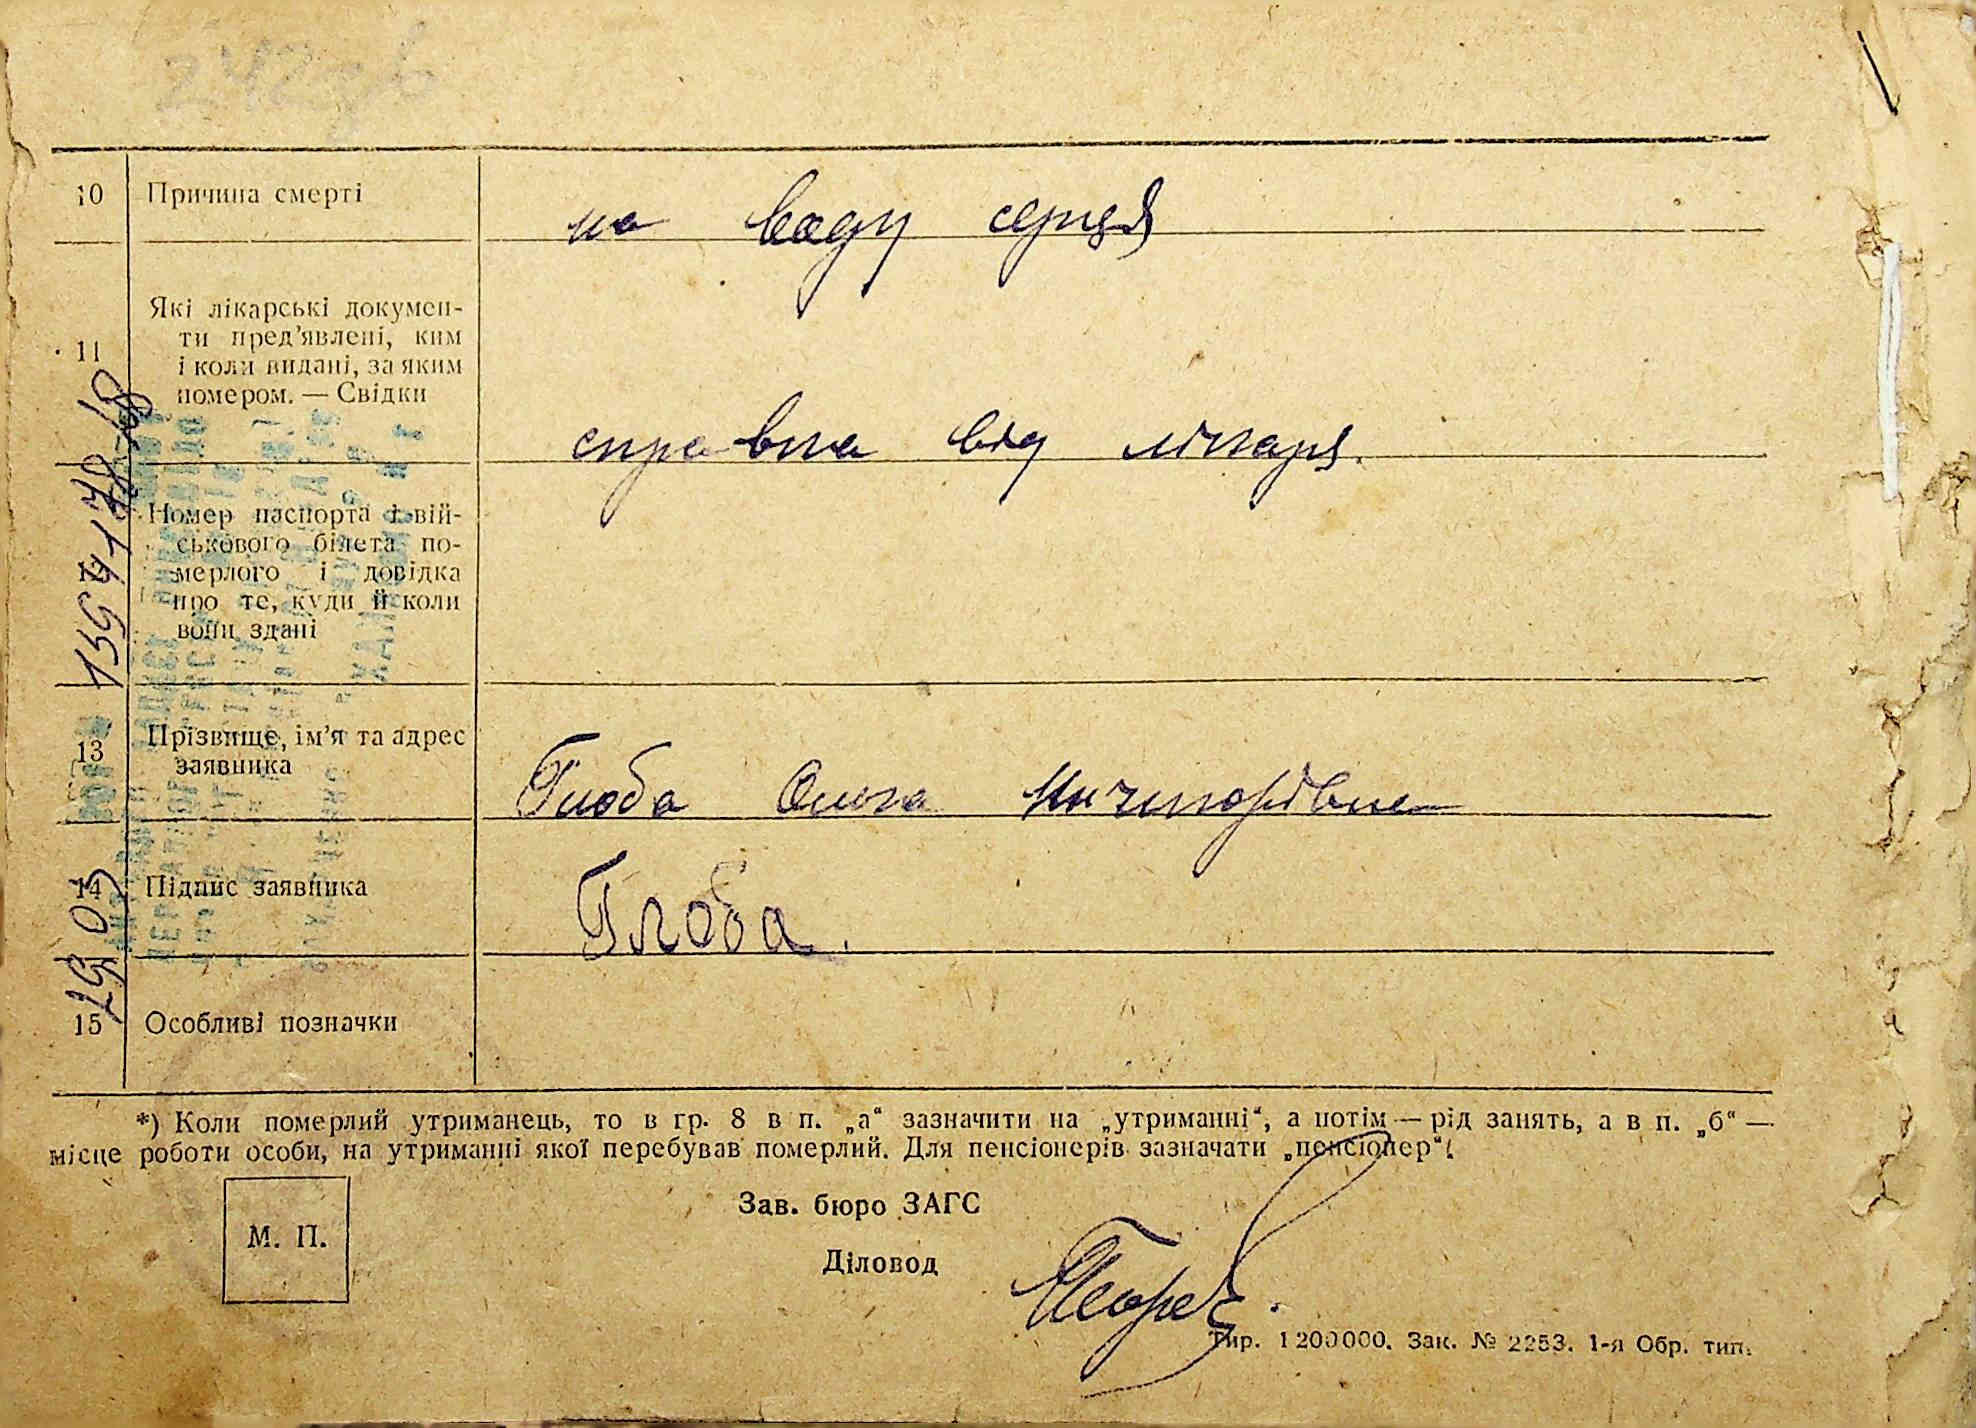 10 Причина смерті
на ваду серця
11 Які лікарські докумен-
ти пред’явлені, ким
і коли видані, за яким
номером. — Свідки
справка від лікаря.
12 Номер паспорта і вій-
ськового білета по-
мерлого і довідка
про те, куди й коли
вони здані
13 Прізвище, ім’я та адрес
заявника
Глоба Ольга
14 Підпис заявника
Глоба.
15 Особливі позначки
*) Коли померлий утриманець, то в гр. 8 в п. „а“ зазначити на „утриманні“, а потім — рід занять, а в п. „б“ —
місце роботи особи, на утриманні якої перебував померлий. Для пенсіонерів зазначати „пенсіонер“.
М. П.
Зав. бюро ЗАГС
Діловод
Тир. 1200000. Зак. № 2253. 1-я Обр. тип.